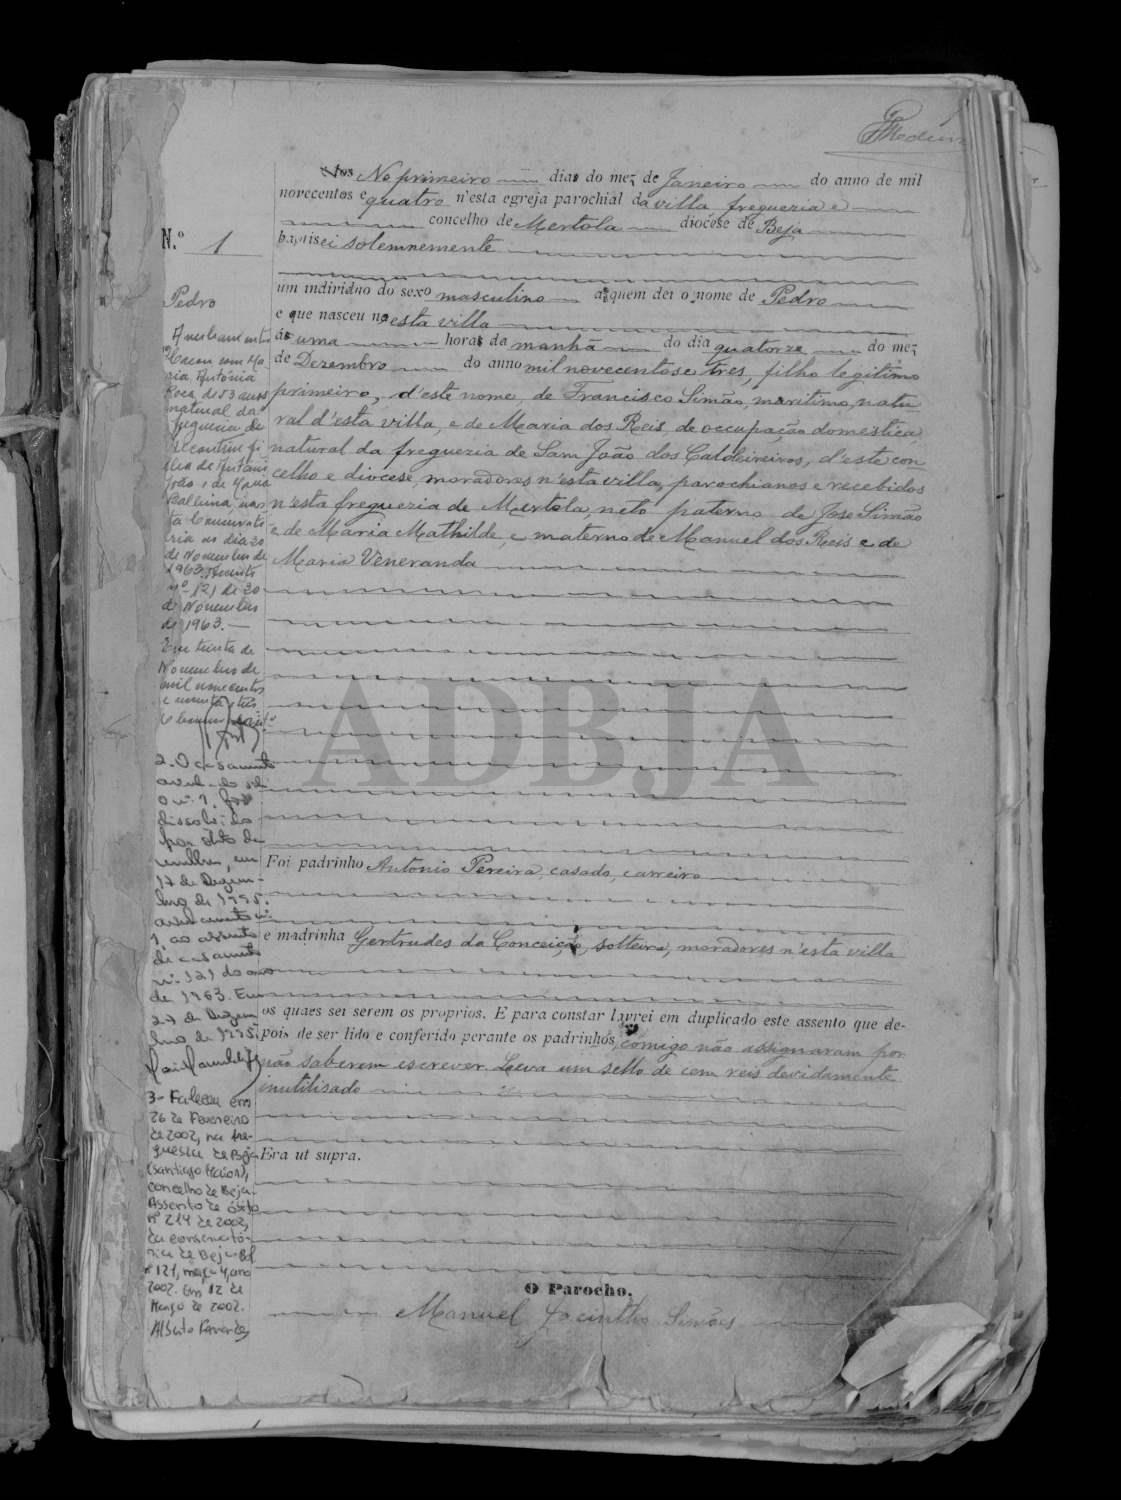 Nº 1
Pedro
Aos No primeiro dias do mez de Janeiro do anno de mil
novecentos e quatro n'esta egreja parochial da villa freguezia e
concelho de Mertola diocese de Beja
baptisei solemnemente
um individuo do sexo masculino a quem dei o nome de Pedro
e que nasceu nesta villa
ás uma horas da manhã do dia quatorze do mez
de Dezembro do anno mil novecentos e tres, filho legitimo
primeiro, d'este nome, de Francisco Simão, maritimo, natu
ral d'esta villa, e de Maria dos Reis, de occupação domestica,
natural da freguezia de Sam João dos Caldeireiros, d'este con
celho e diocese, moradores n'esta villa, parochianos e recebidos
n'esta freguezia de Mertola, neto paterno de José Simão
e de Maria Mathilde, e materno de Manuel dos Reis e de
Maria Veneranda
Foi padrinho Antonio Pereira, casado, carreiro
e madrinha Gertrudes da Conceição, solteira, moradores n'esta villa
os quaes sei serem os proprios. E para constar lavrei em duplicado este assento que de-
pois de ser lido e conferido perante os padrinhos, comigo não assignaram por
não saberem escrever. Leva um sello de cem reis devidamente
inutilisado
Era ut supra.
O Parocho,
Manuel Jacintho Simões
Casou com Ma
ria Antónia
Roca, de 53 anos
natural da
freguesia de
lha de António
João e de Maria
Balbina, nes
ta Conservató
ria no dia 20
de Novembro de
1963. Assento
nº 121 de 20
de Novembro
de 1963.
Em trinta de
Novembro de
mil novecentos
e sessenta e três
2. O casamento
averbado sob
o nº 1, foi
dissolvido
por óbito da
mulher, em
17 de Dezem-
bro de 1995.
averbamento nº
1, ao assento
de casamento
nº 121 do ano
de 1963. Em
27 de Dezem
bro de 1995.
3- Faleceu em
26 de Fevereiro
de 2002, na fre-
guesia de Beja
(Santiago Maior),
concelho de Beja.
Assento de óbito
nº 214 de 2002,
da conservató-
ria de Beja. Bol
nº 121, maço 4, ano
2002. Em 12 de
Março de 2002.
ADBJA